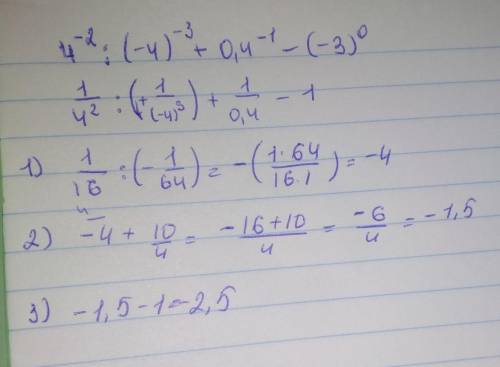 4⁻² : (-4)⁻³ + 0,4⁻¹ - (-3)⁰
1/4² : (+ 1/(-4)³) + 1/0,4 - 1
1) 1/16 : (- 1/64) = -(1·64/16·1) = -4
2) ⁴⁻-4 + 10/4 = -16+10/4 = -6/4 = -1,5
3) -1,5 - 1 = -2,5